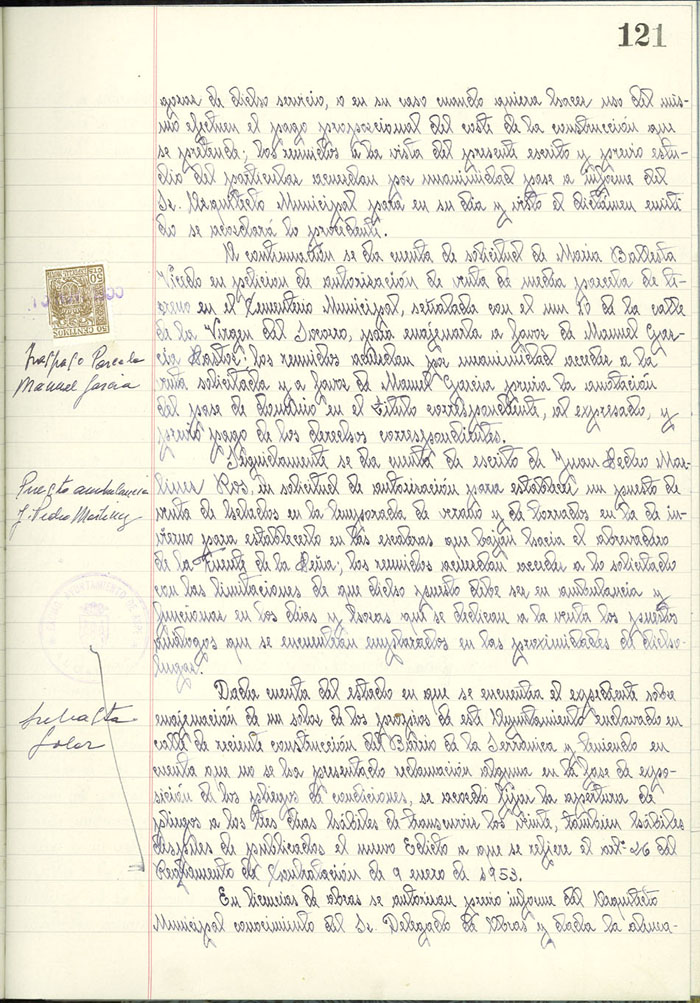 121
gozar de dicho servicio, o en su caso cuando quiera hacer uso del mis-
mo efectuen el pago proporcional del coste de la construcción que
se pretende; los reunidos a la vista del presente escrito y previo estu-
dio del particular acuerdan por unanimidad pase a informe del
Sr. Arquitecto Municipal para en su dia y visto el dictámen emiti-
do se acordará lo procedente.
A continuación se da cuenta de solicitud de Maria Ballesta
Vicedo en peticion de autorización de venta de media parcela de te-
rreno en el Cementerio Municipal, señalada con el num 10 de la calle
de la Virgen del Socorro, para enajenarla a favor de Manuel Gar-
cia Pastor; los reunidos acuerdan por unanimidad acceder a la
venta solicitada y a favor de Manuel Garcia previa la anotación
del pase de dominio en el Titulo correspondiente, al expresado, y
previo pago de los derechos correspondientes.
Seguidamente se da cuenta de escrito de Juan Pedro Mar-
tinez Ros, en solicitud de autorización para establecer un puesto de
venta de helados en la temporada de verano y de torrados en la de in-
vierno para establecerlo en las escaleras que bajan hacia el abrevadero
de la Fuente de la Peña; los reunidos acuerdan acceder a lo solicitado
con las limitaciones de que dicho puesto debe ser en ambulancia y
funcionar en los dias y horas que se dedican a la venta los puestos
análogos que se encuentran emplazados en las proximidades de dicho
lugar.
Dada cuenta del estado en que se encuentra el expediente sobre
enajenación de un solar de los propios de este Ayuntamiento enclavado en
calle de reciente construcción del Barrio de la Serranica y teniendo en
cuenta que no se ha presentado reclamación alguna en la fase de expo-
sición de los pliegos de condiciones, se acordó fijar la apertura de
pliegos a los tres dias hábiles de transcurrir los veinte, tambien hábiles
despues de publicados el nuevo Edicto a que se refiere el artº 26 del
Reglamento de Contratación de 9 enero de 1953.
En licencias de obras se autorizan previo informe del Arquitecto
Municipal conocimiento del Sr. Delegado de Obras y dada la alinea-
50 CENTIMOS
Traspaso Parcela
Manuel Garcia
Puesto ambulancia
J. Pedro Martinez
AYUNTAMIENTO DE
Subasta
Solar